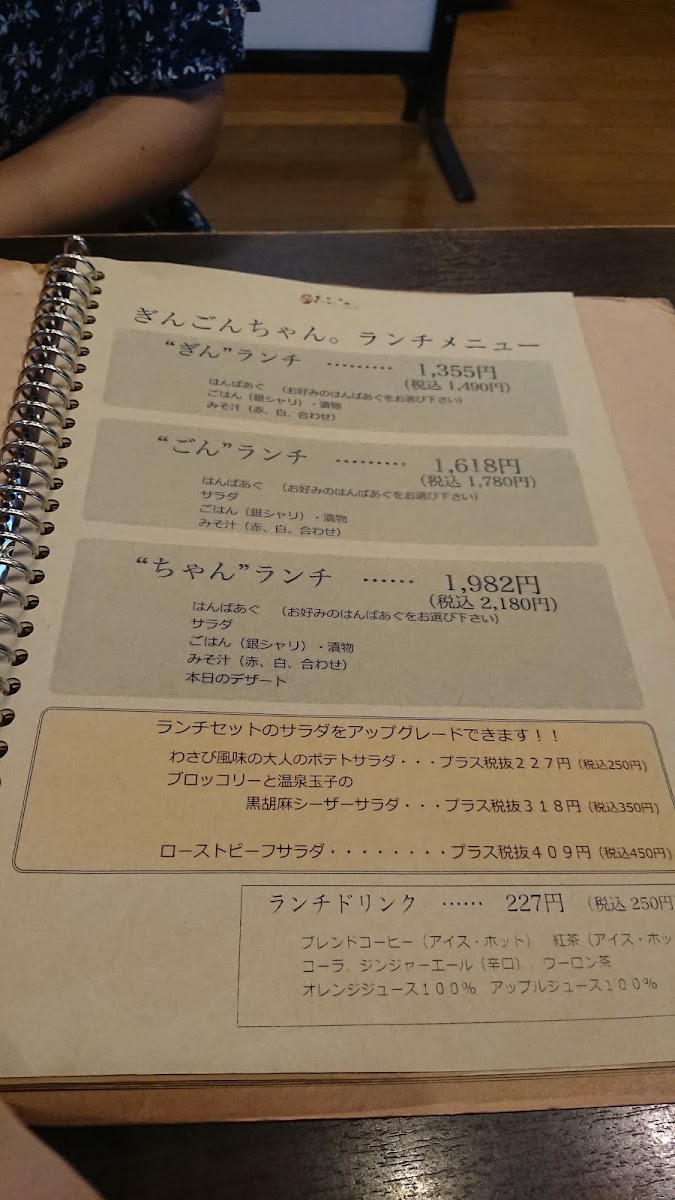 ぎんごんちゃん。ランチメニュー
“ぎん”ランチ ……… 1,355円
(税込 1,490円)
はんばあぐ (お好みのはんばあぐをお選び下さい)
ごはん(銀シャリ)・漬物
みそ汁(赤、白、合わせ)
“ごん”ランチ ……… 1,618円
(税込 1,780円)
はんばあぐ (お好みのはんばあぐをお選び下さい)
サラダ
ごはん(銀シャリ)・漬物
みそ汁(赤、白、合わせ)
“ちゃん”ランチ …… 1,982円
(税込 2,180円)
はんばあぐ (お好みのはんばあぐをお選び下さい)
サラダ
ごはん(銀シャリ)・漬物
みそ汁(赤、白、合わせ)
本日のデザート
ランチセットのサラダをアップグレードできます!!
わさび風味の大人のポテトサラダ・・・プラス税抜227円(税込250円)
ブロッコリーと温泉玉子の
黒胡麻シーザーサラダ・・・プラス税抜318円(税込350円)
ローストビーフサラダ・・・・・・・・プラス税抜409円(税込450円)
ランチドリンク …… 227円 (税込 250円
ブレンドコーヒー(アイス・ホット) 紅茶(アイス・ホッ
コーラ、ジンジャーエール(辛口)、ウーロン茶
オレンジジュース100% アップルジュース100%